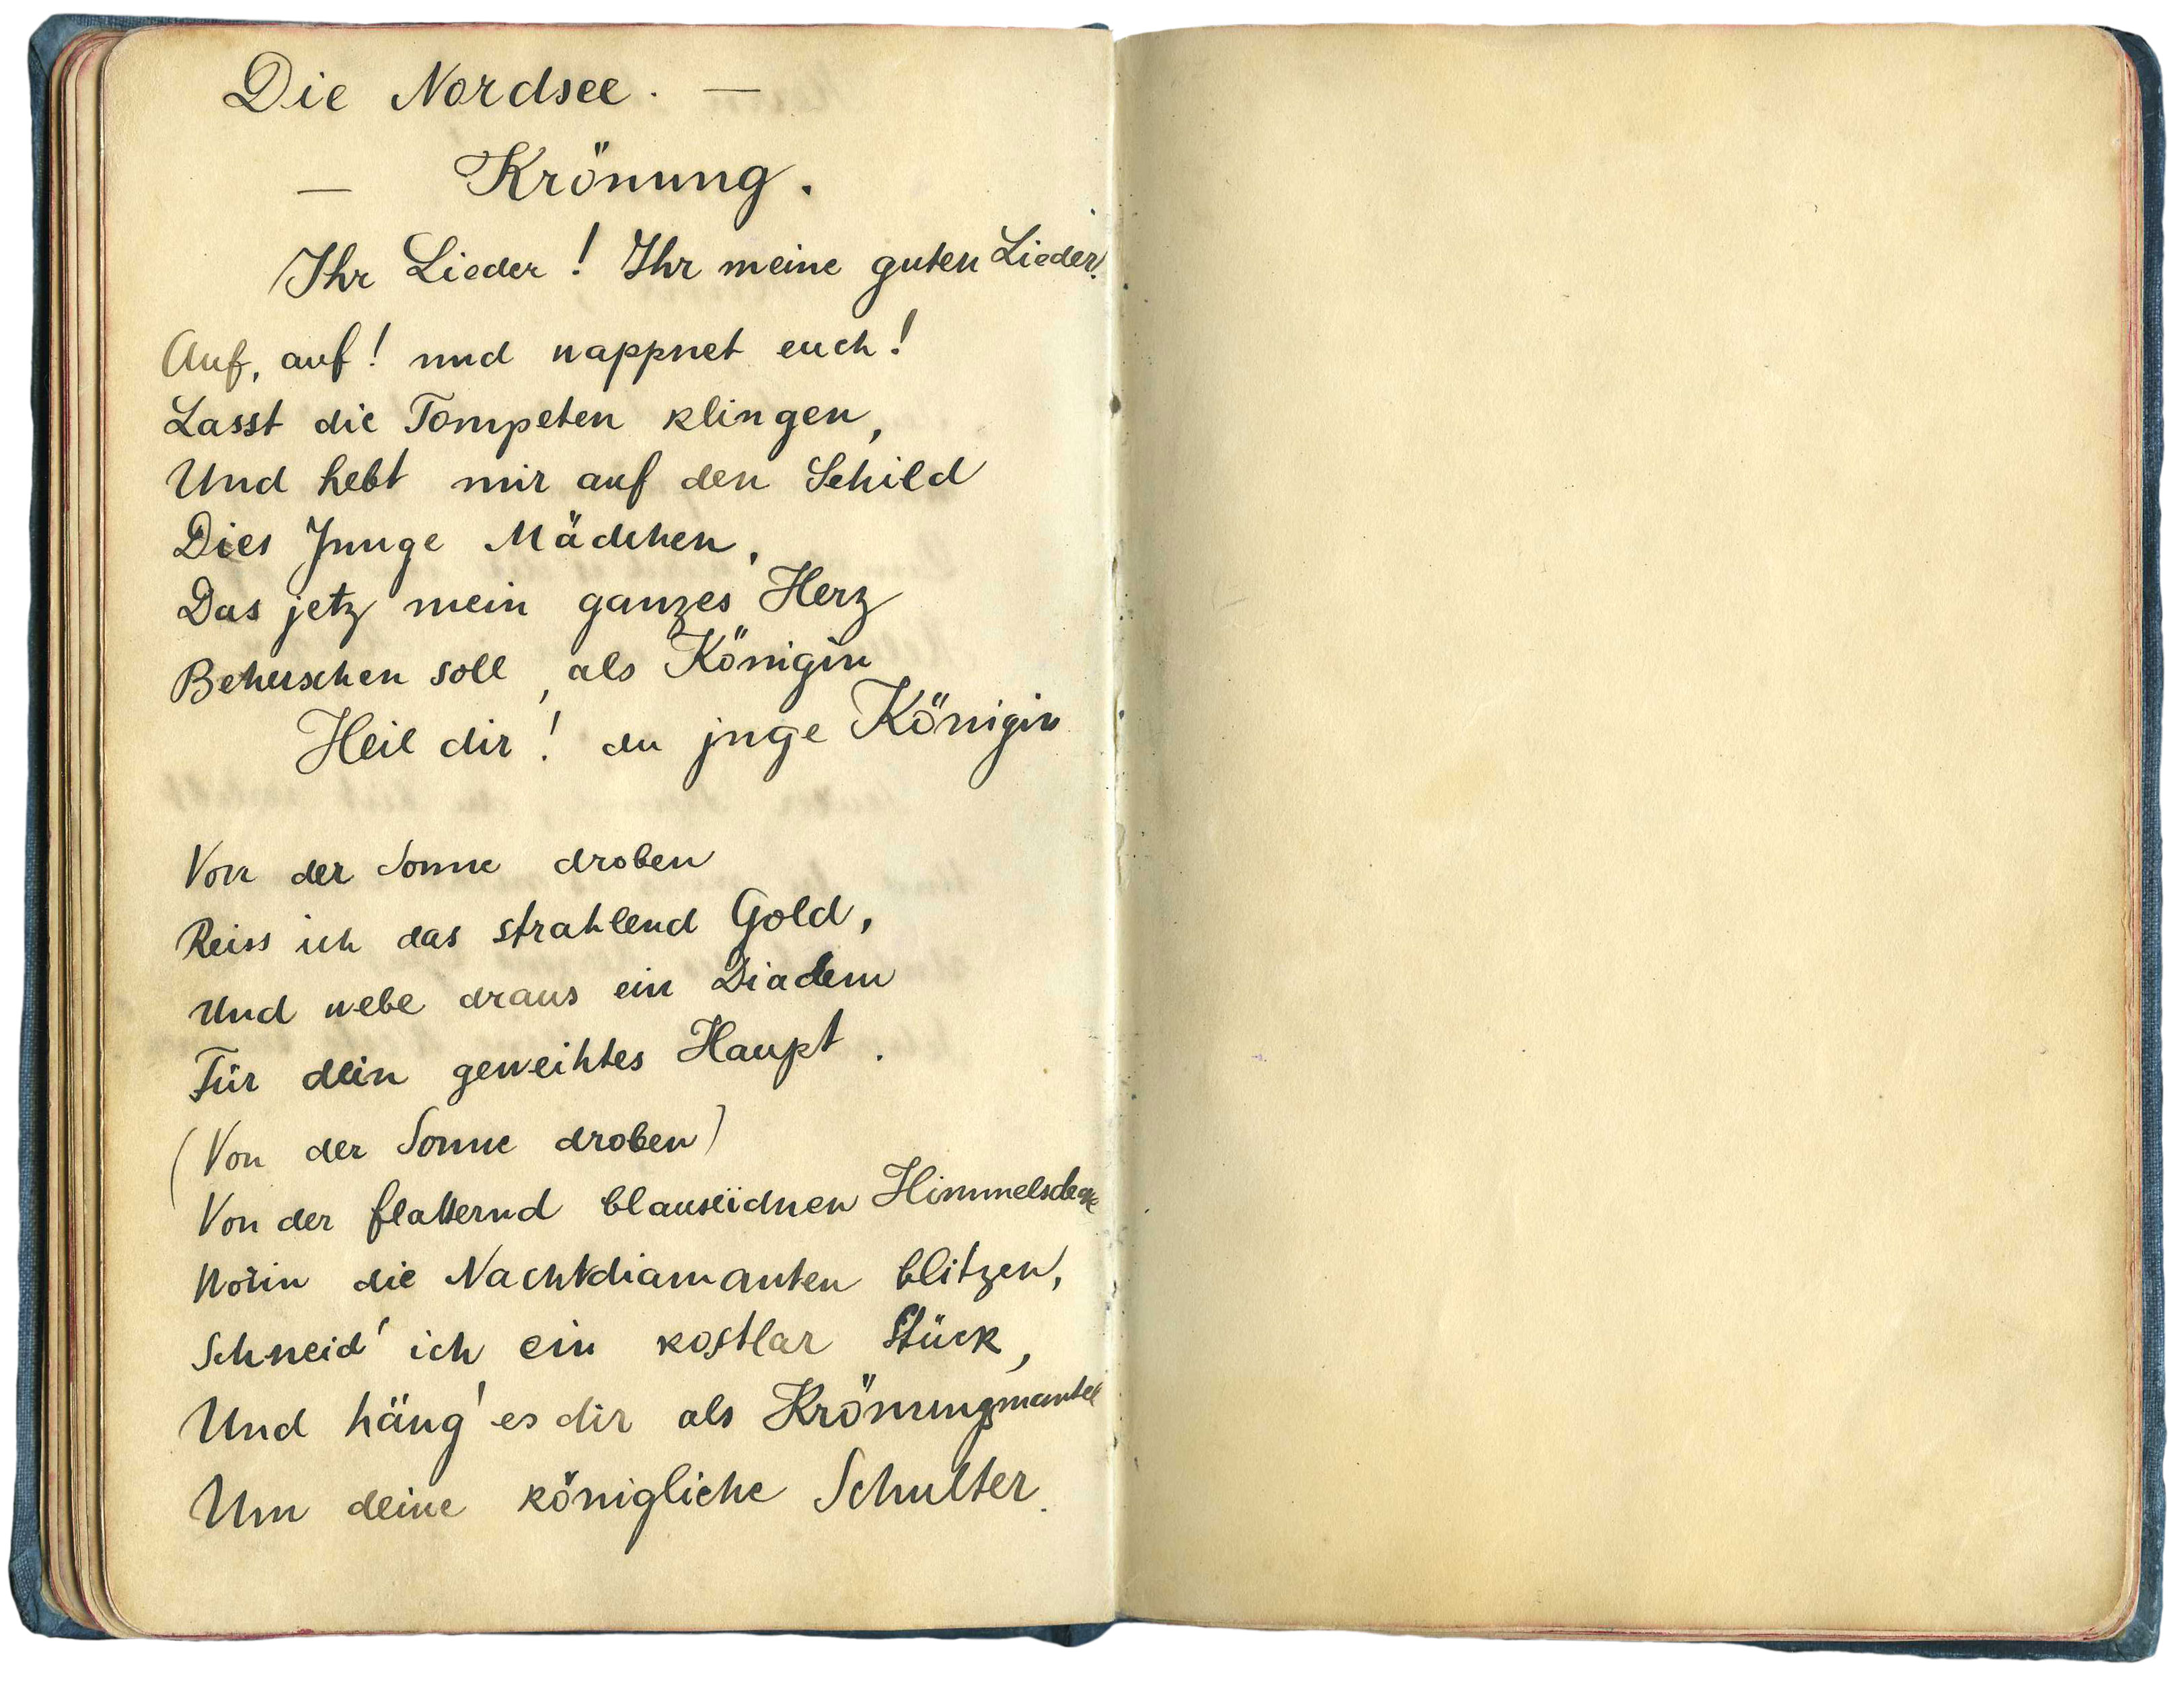 Die Nordsee. —
— Krönung.
Ihr Lieder! Ihr meine guten Lieder!
Auf, auf! und wappnet euch!
Lasst die Tompeten klingen,
Und hebt mir auf den Schild
Dies Junge Mädchen,
Das jetz mein ganzes Herz
Beherschen soll, als Königin
Heil dir! du juge Königin
Von der Sonne droben
Reiss ich das strahlend Gold,
Und webe draus ein Diadem
Für dein geweihtes Haupt.
(Von der Sonne droben)
Von der flatternd blauseidnen Himmelsdecke
Worin die Nachtdiamanten blitzen,
Schneid' ich ein kostbar Stück,
Und häng' es dir als Krönungsmantel
Um deine königliche Schulter.